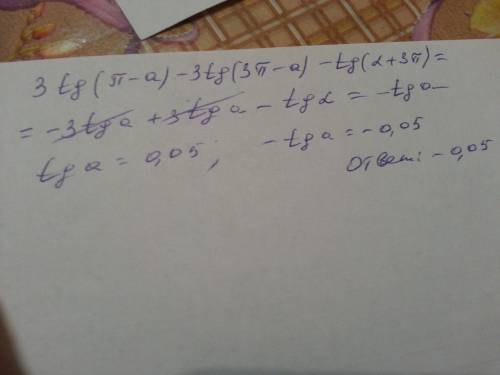 3 tg(π-a) -3tg(3π-a) -tg(α+3π)=
= -3tga +3tga - tgα = -tga
tga = 0,05; -tga = -0,05
Ответ: -0,05